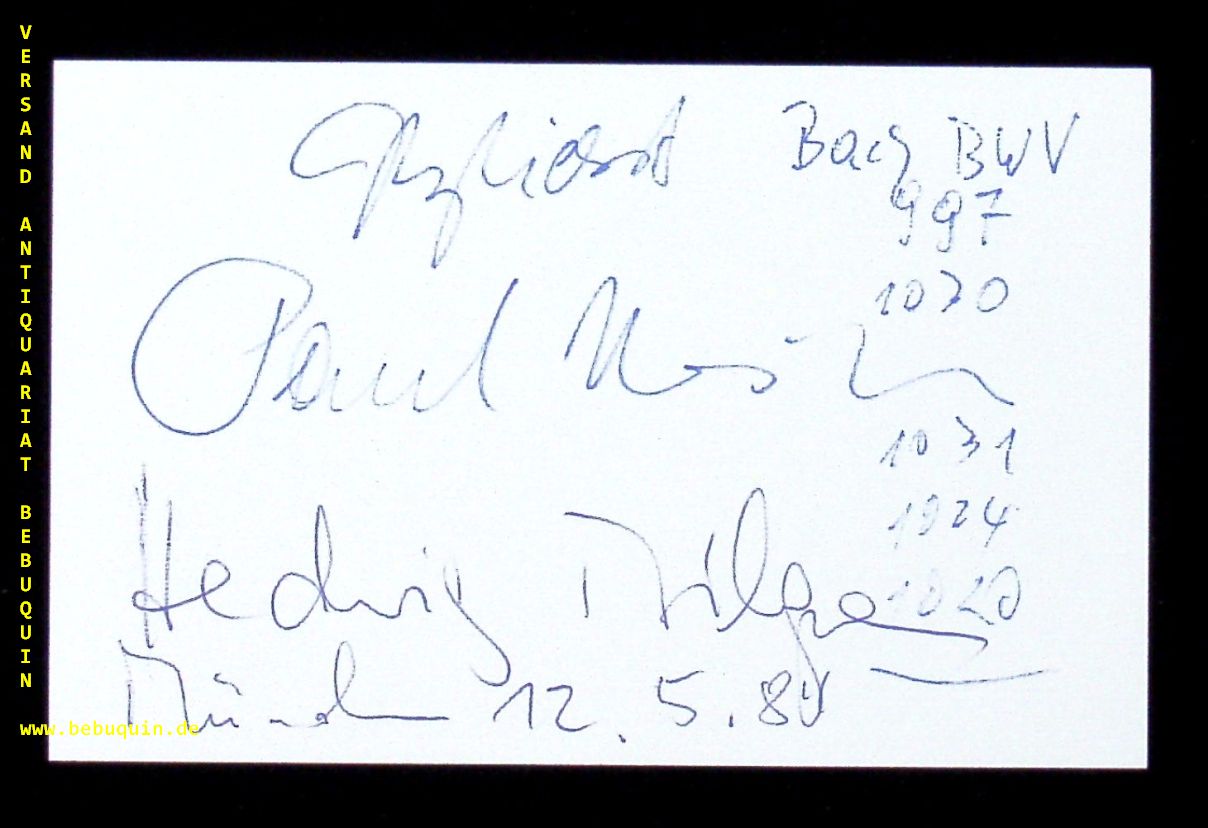 VERSAND ANTIQUARIAT BEBUQUIN
Bach BWV
997
1030
Paul
1031
1024
1020
Hedwig Bilgram
München 12. 5. 80
www.bebuquin.de